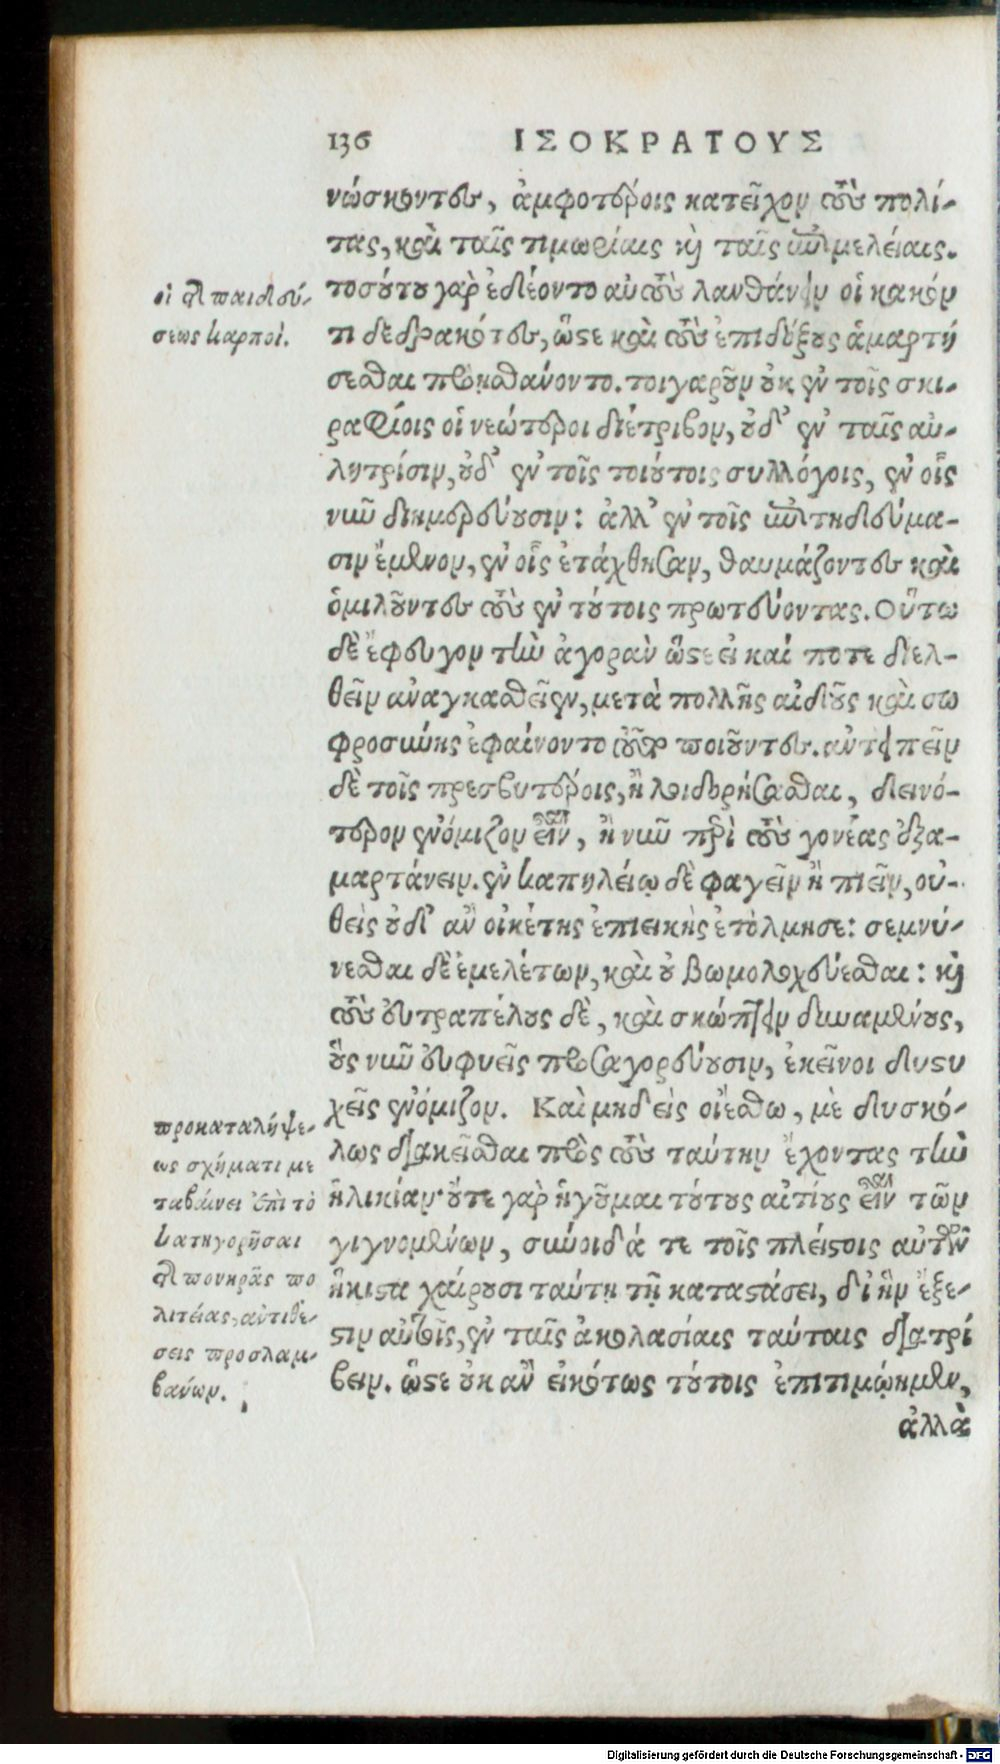 136 ΙΣΟΚΡΑΤΟΥΣ
νώσκοντες, ἀμφοτέροις κατεῖχον τοὺς πολί-
τας, καὶ ταῖς τιμωρίαις καὶ ταῖς ἐπιμελείαις.
τοσούτου γὰρ ἐδέοντο αὐτοὺς λανθάνειν οἱ κακόν
τι δεδρακότες, ὥστε καὶ τοὺς ἐπιδόξους ἁμαρτή
σεσθαι προῃσθάνοντο. τοιγαροῦν οὐκ ἐν τοῖς σκι-
ραφίοις οἱ νεώτεροι διέτριβον, οὐδ' ἐν ταῖς αὐ-
λητρίσιν, οὐδ' ἐν τοῖς τοιούτοις συλλόγοις, ἐν οἷς
νῦν διημερεύουσιν: ἀλλ' ἐν τοῖς ἐπιτηδεύμα-
σιν ἔμενον, ἐν οἷς ἐτάχθησαν, θαυμάζοντες καὶ
ὁμιλοῦντες τοὺς ἐν τούτοις πρωτεύοντας. Οὕτω
δὲ ἔφευγον τὴν ἀγορὰν ὥστε εἰ καί ποτε διελ-
θεῖν ἀναγκασθεῖεν, μετὰ πολλῆς αἰδοῦς καὶ σω
φροσύνης ἐφαίνοντο τοῦτο ποιοῦντες. ἀντειπεῖν
δὲ τοῖς πρεσβυτέροις, ἢ λοιδορήσασθαι, δεινό-
τερον ἐνόμιζον εἶναι, ἢ νῦν περὶ τοὺς γονέας ἐξα-
μαρτάνειν. ἐν καπηλείῳ δὲ φαγεῖν ἢ πιεῖν, οὐ-
θεὶς οὐδ' ἂν οἰκέτης ἐπιεικὴς ἐτόλμησε: σεμνύ-
νεσθαι δὲ ἐμελέτων, καὶ οὐ βωμολοχεύεσθαι: καὶ
τοὺς εὐτραπέλους δὲ, καὶ σκώπτειν δυναμένους,
οὓς νῦν εὐφυεῖς προσαγορεύουσιν, ἐκεῖνοι δυστυ
χεῖς ἐνόμιζον. Καὶ μηδεὶς οἰέσθω, μὲ δυσκό-
λως διακεῖσθαι πρὸς τοὺς ταύτην ἔχοντας τὴν
ἡλικίαν· οὔτε γὰρ ἡγοῦμαι τούτους αἰτίους εἶναι τῶν
γιγνομένων, σύνοιδά τε τοῖς πλείστοις αὐτῶν
ἥκιστα χαίρουσι ταύτῃ τῇ καταστάσει, δι' ἣν ἔξε-
στιν αὐτοῖς, ἐν ταῖς ἀκολασίαις ταύταις διατρί
βειν. ὥστε οὐκ ἂν εἰκότως τούτοις ἐπιτιμῴημεν,
ἀλλὰ
οἱ τῆς παιδεύ-
σεως καρποὶ.
προκαταλήψε-
ως σχήματι με
ταβαίνει ἐπὶ τὸ
κατηγορῆσαι
τῆς πονηρᾶς πο
λιτείας, ἀντιθέ-
σεις προσλαμ-
βάνων.
Digitalisierung gefördert durch die Deutsche Forschungsgemeinschaft - DFG